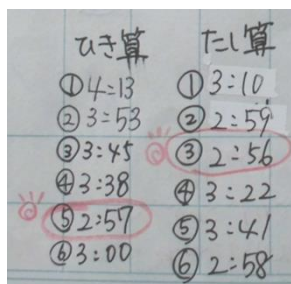 ひき算
①4:13
②3:53
③3:45
④3:38
⑤2:57
⑥3:00
たし算
①3:10
②2:59
③2:56
④3:22
⑤3:41
⑥2:58